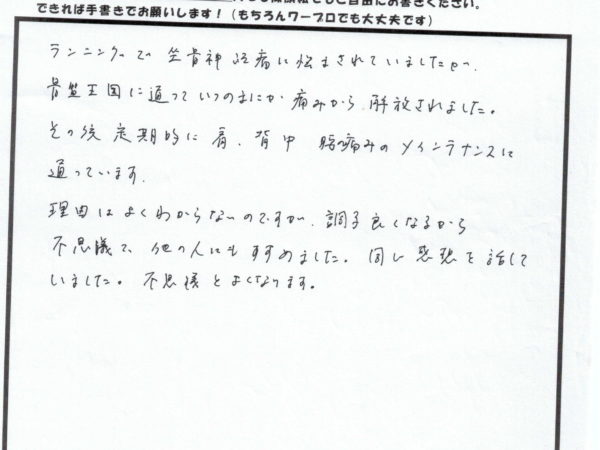 できれば手書きでお願いします!(もちろんワープロでも大丈夫です)
ランニングで坐骨神経痛に悩まされていましたが、
骨盤王国に通っていつのまにか痛みから解放されました。
その後定期的に肩、背中 腰痛みのメインテナンスに
通っています。
理由はよくわからないのですが、調子良くなるから
不思議で、他の人にもすすめました。同じ感想を話して
いました。不思議とよくなります。